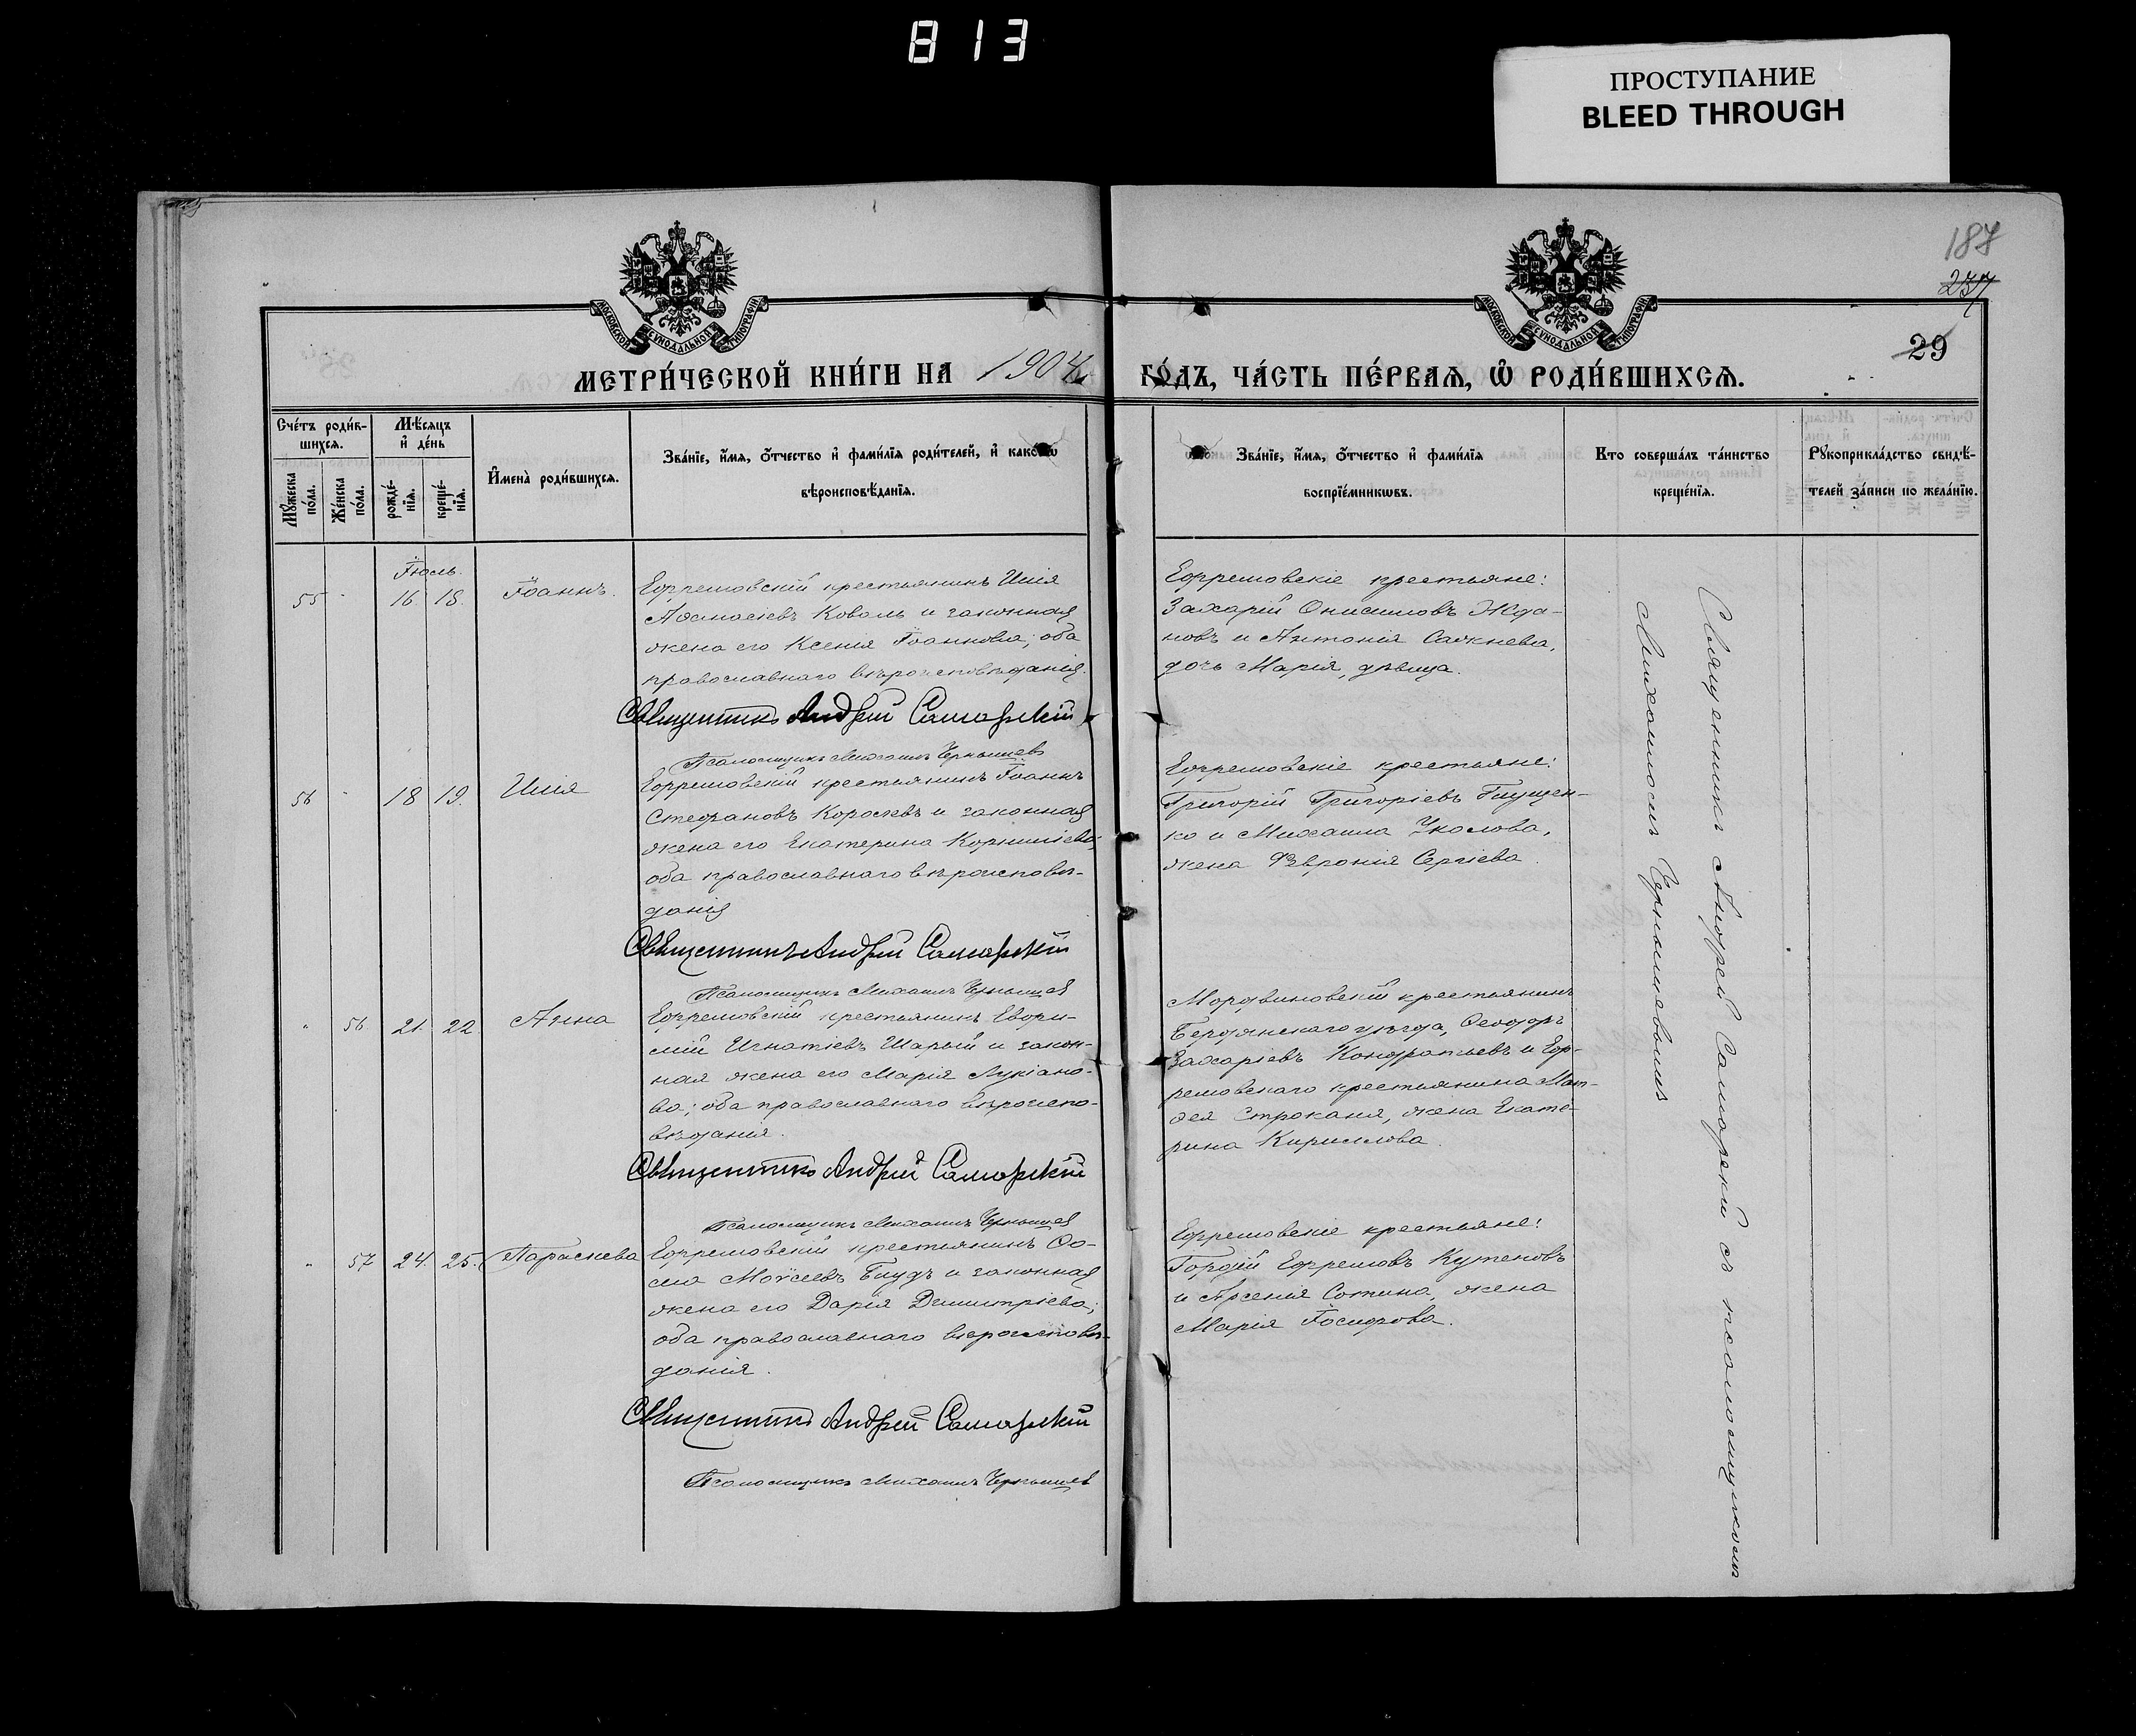 813
ПРОСТУПАНИЕ
BLEED THROUGH
187
237
29
МОСКОВСКОЙ СѴНОДАЛЬНОЙ ТИПОГРАФІИ
МОСКОВСКОЙ СѴНОДАЛЬНОЙ ТИПОГРАФІИ
МЕТРИ́ЧЕСКОЙ КНИ́ГИ НА 1904
ГО́ДЪ, ЧА́СТЬ ПЕ́РВАЯ, Ѡ РОДИ́ВШИХСЯ.
Сче́тъ роди́в-
шихся.
Мꙋжеска по́ла.
Же́нска по́ла.
Мѣ́сяцъ
и де́нь
рожде́-
нїя.
креще́-
нїя.
Имена̀ роди́вшихся.
Зва́нїе, и́мя, о́тчество и фами́лїя роди́телей, и како́гѡ
вѣроисповѣ́данїя.
Зва́нїе, и́мя, о́тчество и фами́лїя
воспрїе́мникѡвъ.
Кто соверша́лъ та́инство
креще́нїя.
Рꙋкоприкла́дство свидѣ́-
телей за́писи по жела́нїю.
Іюль.
55 " 16. 18. Іоаннъ.
Ефремовскій крестьянинъ Илія
Аѳанасіевъ Коваль и законная
жена его Ксенія Іоаннова; оба
православнаго вѣроисповѣданія.
Священникъ Андрей Самарскій
Псаломщикъ Михаилъ Чернышев
Ефремовскіе крестьяне:
Захарій Онисимовъ Жда-
новъ и Антонія
дочь Марія, дѣвица.
56 " 18 19. Илія
Ефремовскій крестьянинъ Іоаннъ
Стефановъ и законная
жена его Екатерина Корниліева;
оба православнаго вѣроисповѣ-
данія
Священникъ Андрей Самарскій
Псаломщикъ Михаилъ Чернышев
Ефремовскіе крестьяне:
Григорій Григоріевъ
и Михаила Уколова,
жена Февронія Сергіева.
" 56 21. 22 Анна
Ефремовскій крестьянинъ Евфи-
мій Игнатіевъ Шарый и закон-
ная жена его Марія Лукіано-
ва; оба православнаго вѣроиспо-
вѣданія.
Священникъ Андрей Самарскій
Псаломщикъ Михаилъ Чернышев
Мордвиновскій крестьянинъ
Бердянскаго уѣзда, Ѳеодоръ
Захаріевъ Кондратьевъ и Еф-
ремовскаго крестьянина Мат-
ѳея Строканя, жена Екате-
рина Кириллова.
" 57 24. 25. Параскева
Ефремовскій крестьянинъ Ѳо-
ма Моѵсеевъ и законная
жена его Дарія Димитріева;
оба православнаго вѣроисповѣ-
данія.
Священникъ Андрей Самарскій
Псаломщикъ Михаилъ Чернышев
Ефремовскіе крестьяне:
Гордій Ефремовъ Кутеповъ
и Арсенія Сотина, жена
Марія Іосифова.
Священникъ Андрей Самарскій съ псаломщикомъ
Михаиломъ Чернышевымъ